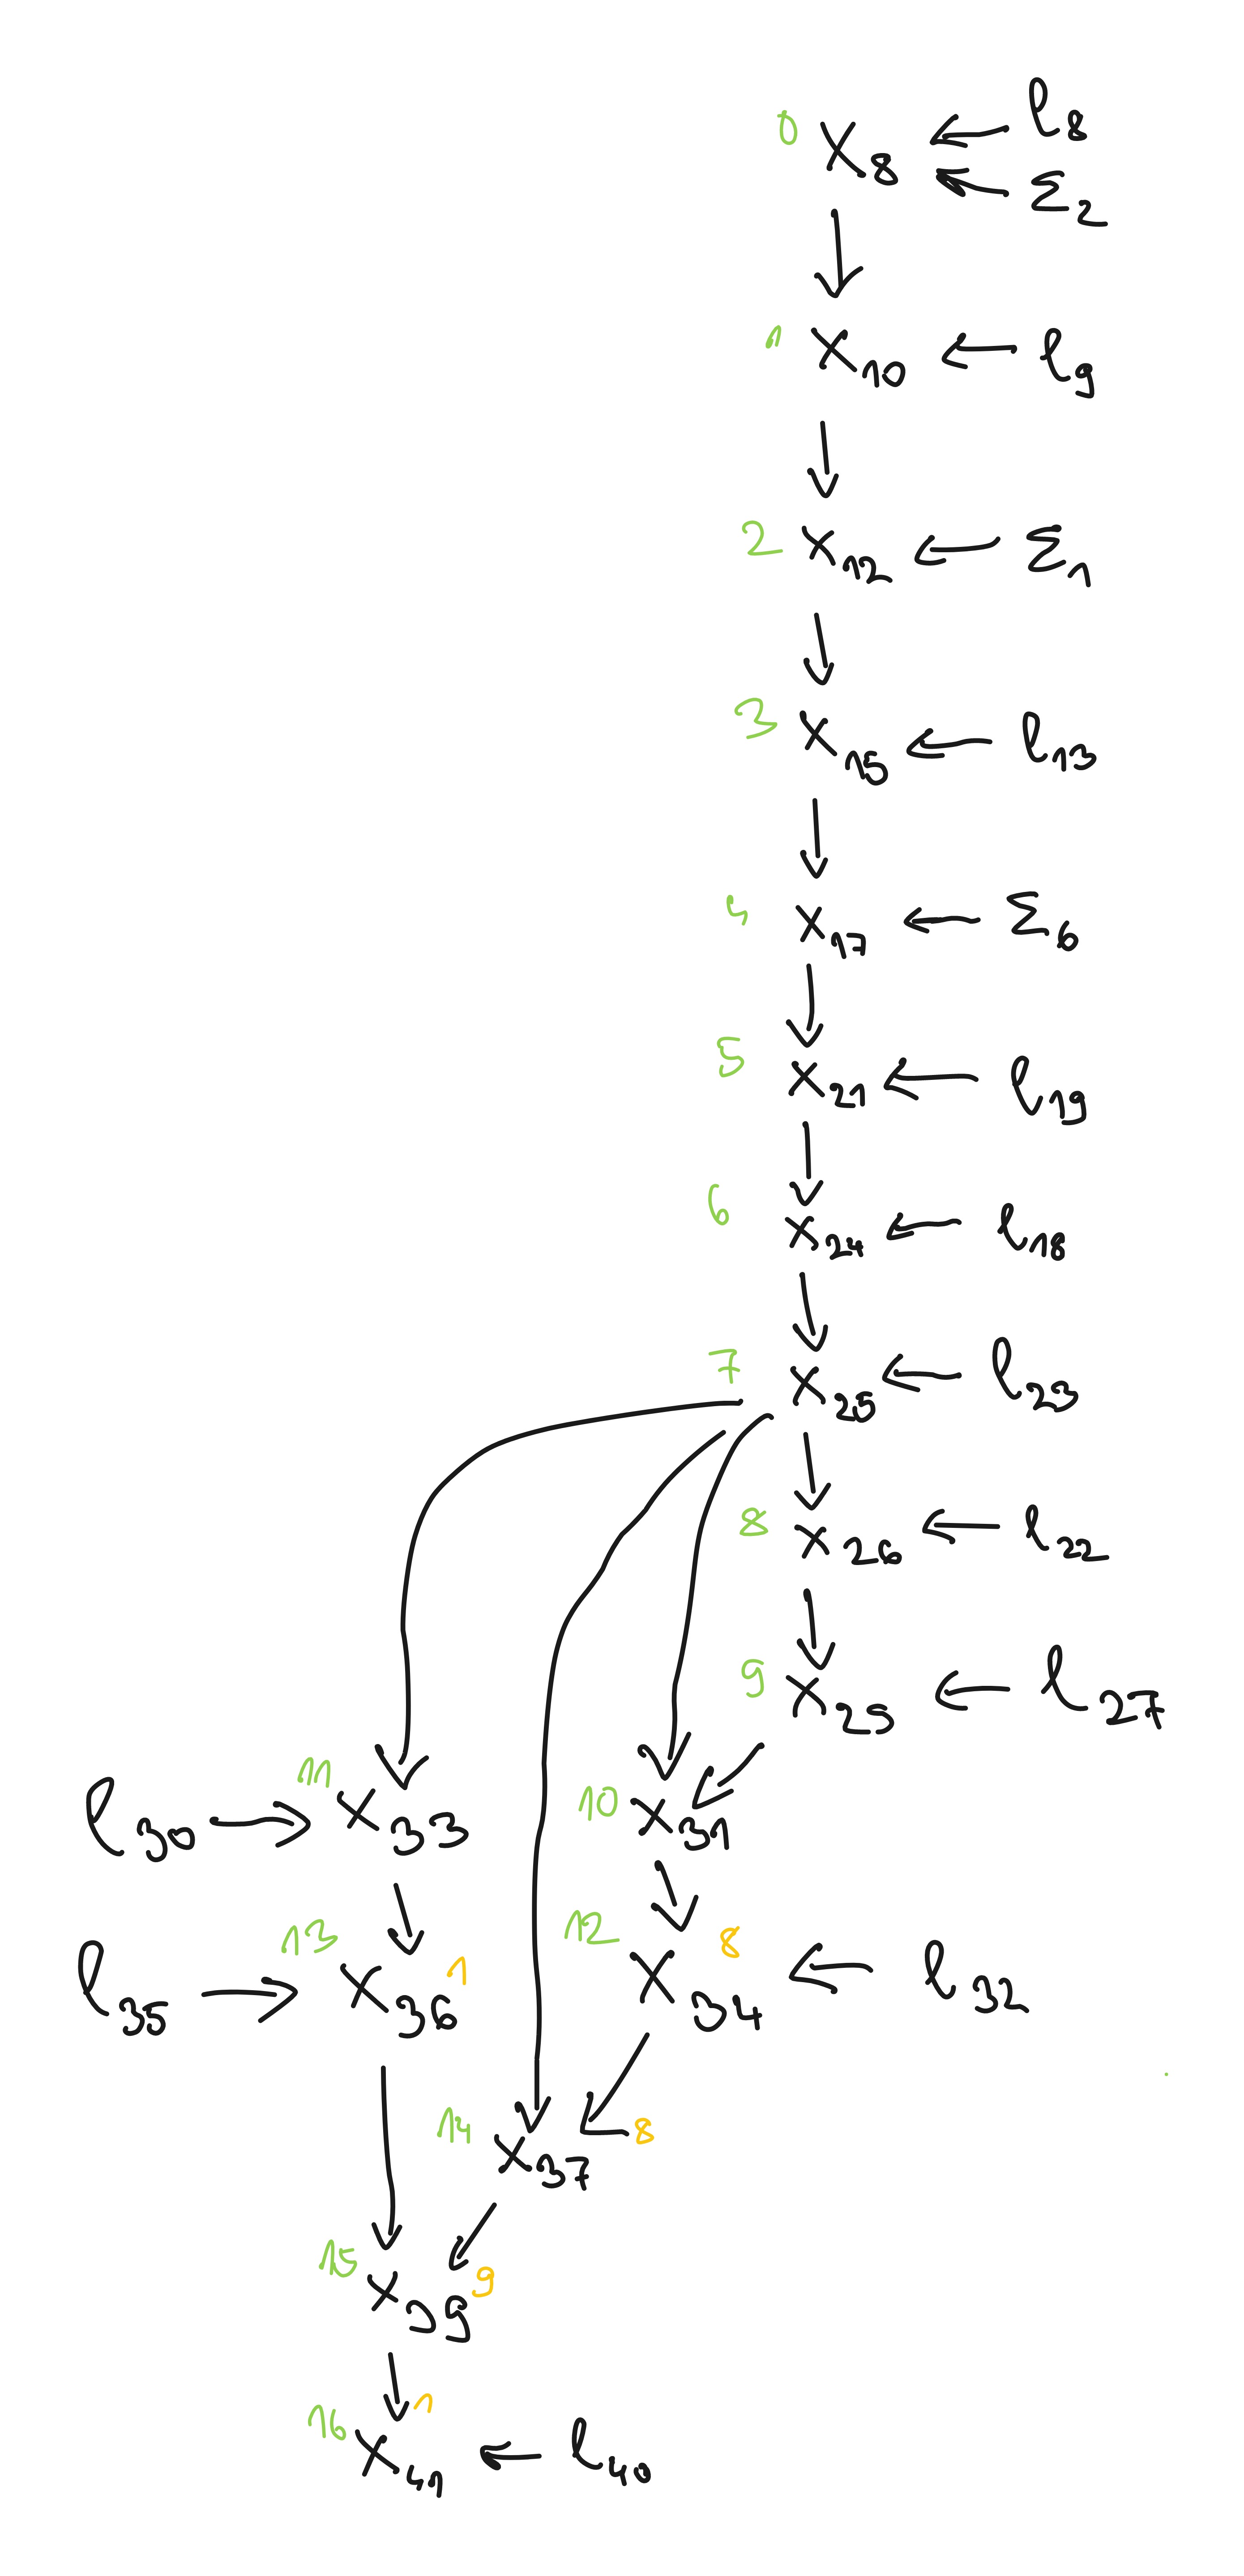 0 X₈ ← l₈
← Σ₂
1 X₁₀ ← l₉
2 X₁₂ ← Σ₁
3 X₁₅ ← l₁₃
4 X₁₇ ← Σ₆
5 X₂₁ ← l₁₉
6 X₂₄ ← l₁₈
7 X₂₅ ← l₂₃
8 X₂₆ ← l₂₂
9 X₂₅ ← l₂₇
l₃₀ → 11 X₃₃ 10 X₃₁
l₃₅ → 13 X₃₆ 1 12 X₃₄ 8 ← l₃₂
14 X₃₇ 8
15 X₃₉ 9
16 X₄₁ 1 ← l₄₀